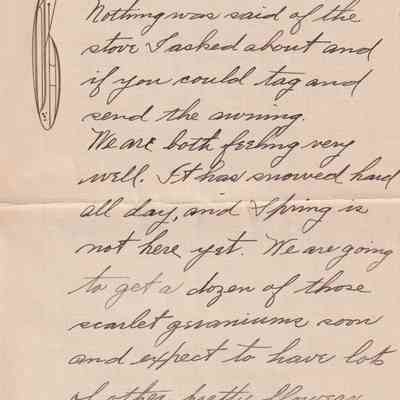 Nothing was said of the
stove I asked about and
if you could tag and
send the awning.
We are both feeling very
well. It has snowed hard
all day, and Spring is
not here yet. We are going
to get a dozen of those
scarlet geraniums soon
and expect to have lots
of other pretty flowers